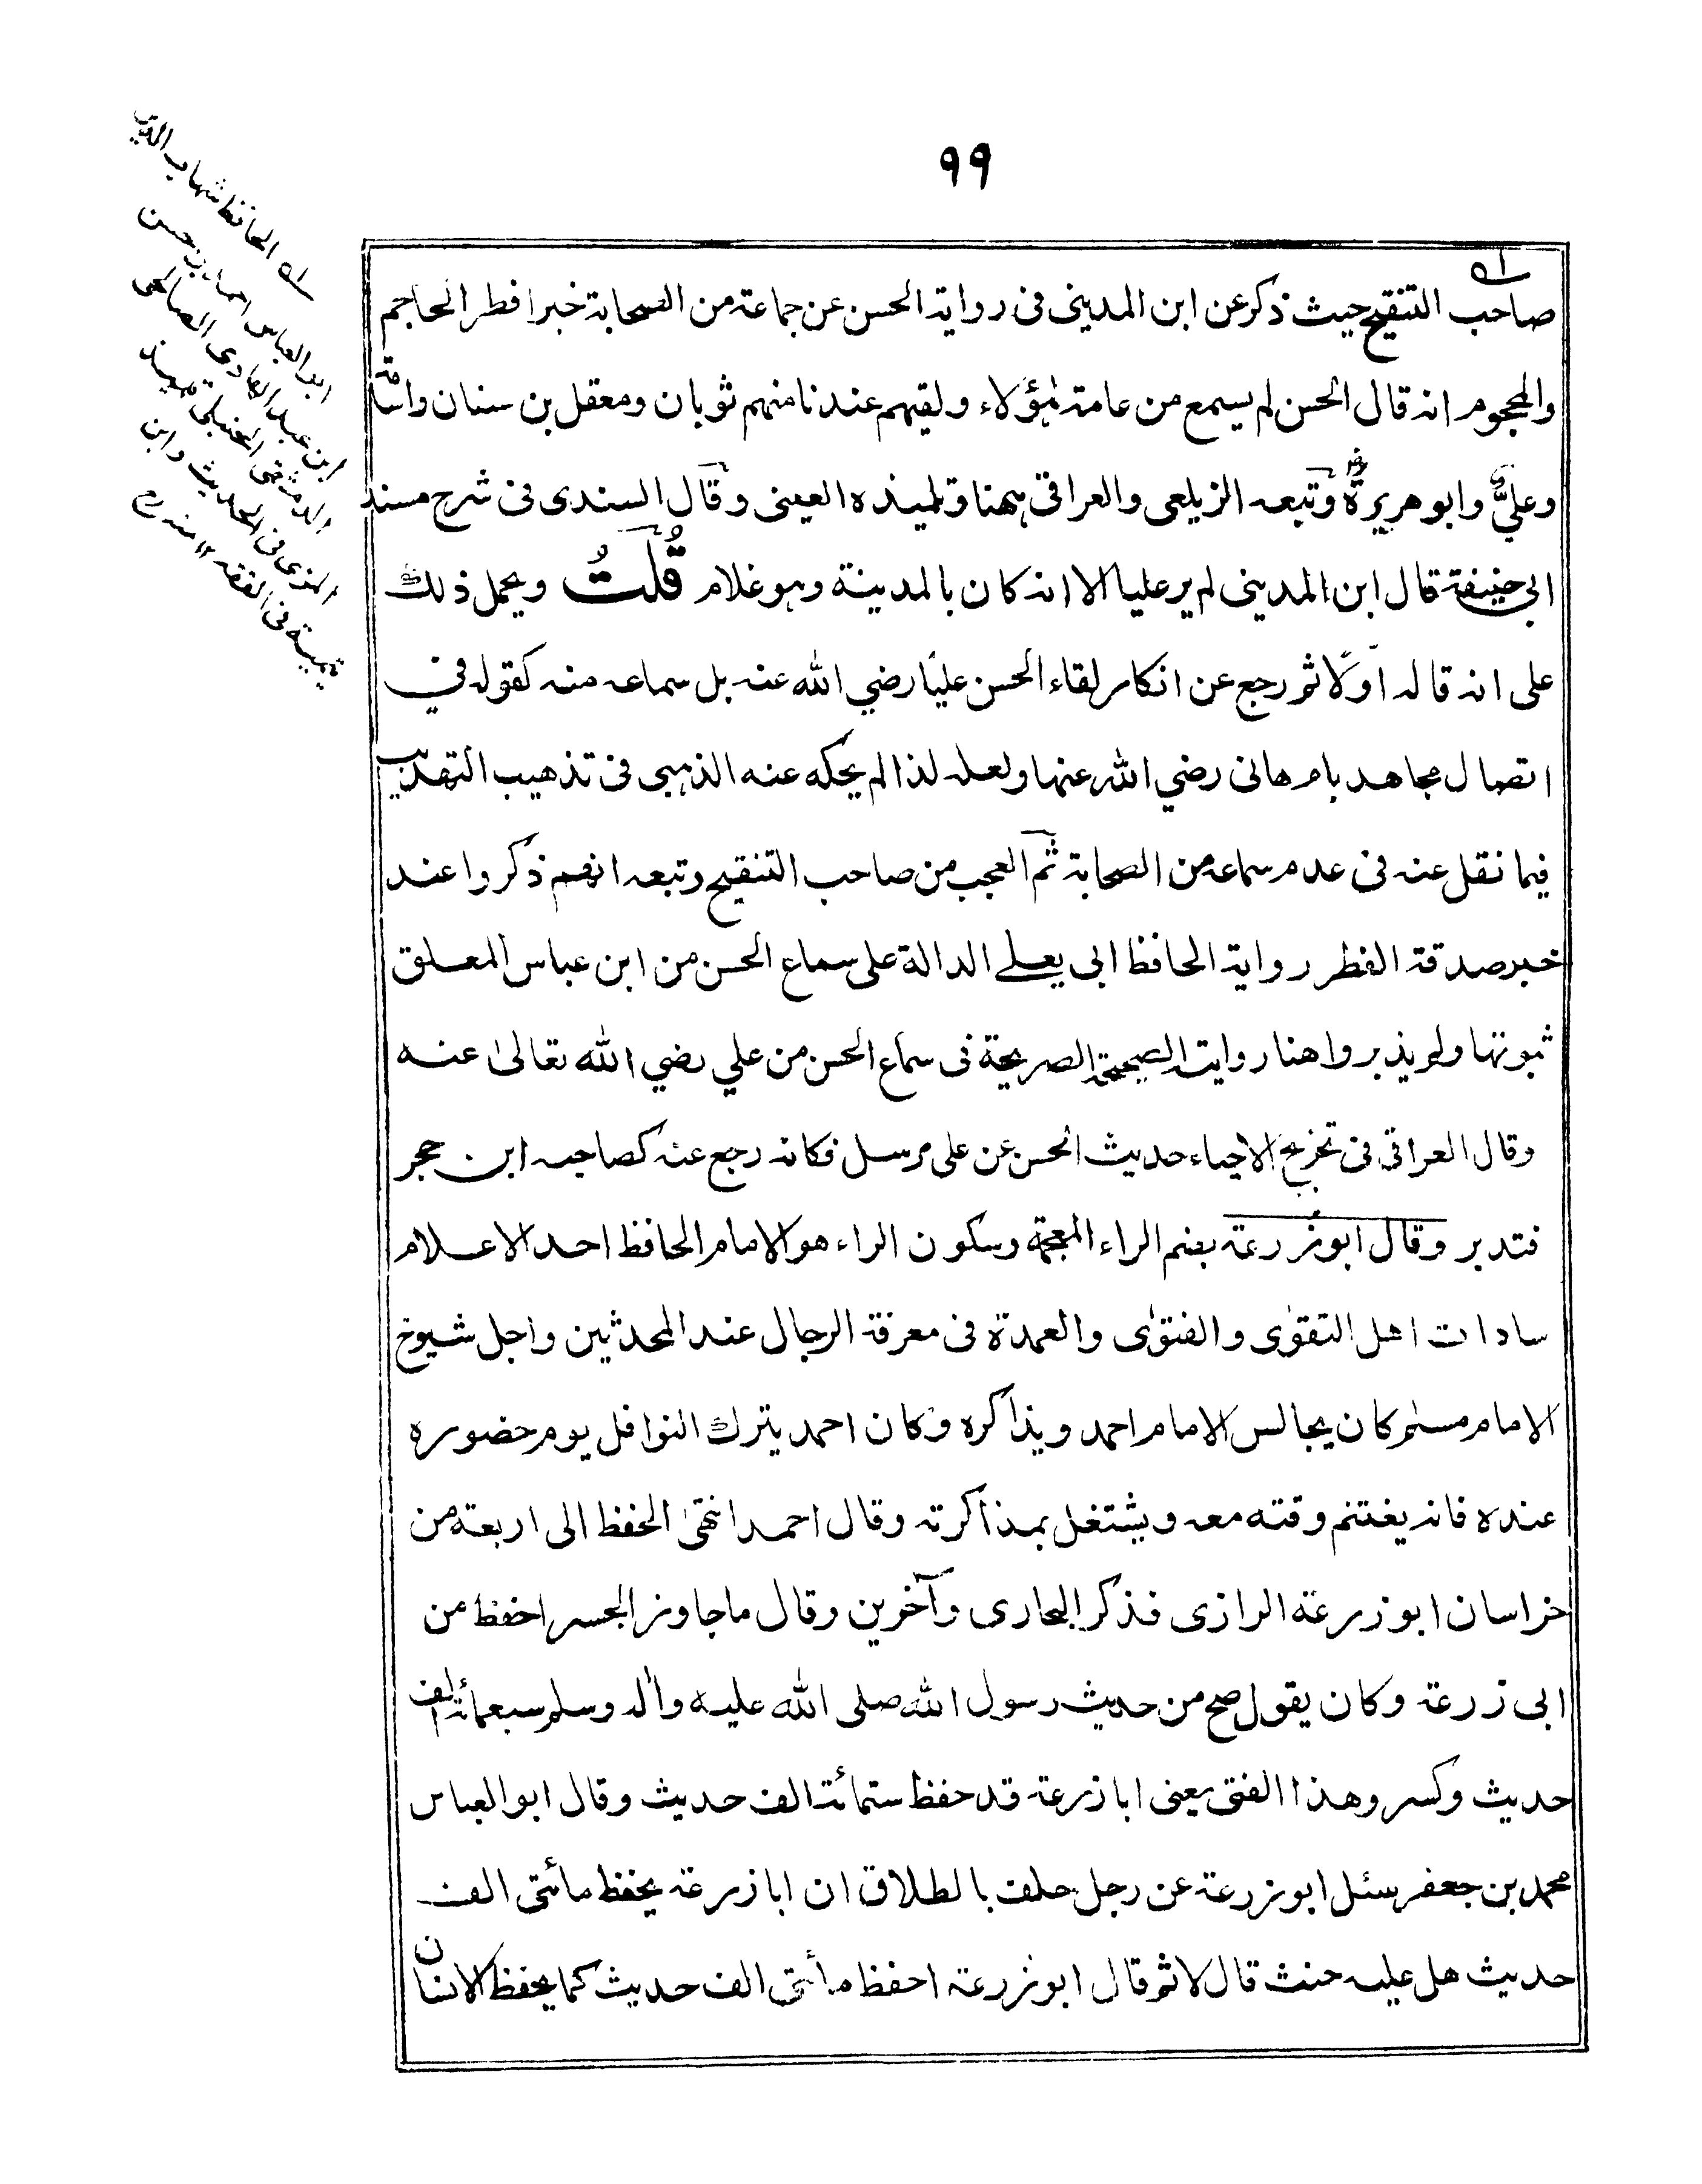 ٩٩
صاحب التنقيح حيث ذكر عن ابن المديني في رواية الحسن عن جماعة من الصحابة خبر افطر الحاجم
والمحجوم انه قال الحسن لم يسمع من عامة هؤلاء ولقيهم عندنا منهم ثوبان ومعقل بن سنان واسامة
وعلي وابو هريرة وتبعه الزيلعي والعراقي ههنا وتلميذه العيني وقال السندي في شرح مسند
ابي حنيفة قال ابن المديني لم ير عليا الا انه كان بالمدينة وهو غلام قُلْتُ ويحمل ذلك
على انه قاله اوّلًا ثم رجع عن انكار لقاء الحسن عليًا رضي الله عنه بل سماعه منه كقوله في
اتصال مجاهد بام هانى رضي الله عنها ولعله لذا لم يحكه عنه الذهبي في تذهيب التهذيب
فيما نقل عنه في عدم سماعه من الصحابة ثم العجب من صاحب التنقيح وتبعه انهم ذكروا عند
خبر صدقة الفطر رواية الحافظ ابي يعلے الدالة على سماع الحسن من ابن عباس المعلق
ثبوتها ولم يذبروا هنا روايته الصحيحة الصريحة في سماع الحسن من علي رضي الله تعالىٰ عنه
وقال العراقي في تخريج الاحياء حديث الحسن عن علي مرسل فكانه رجع عنه كصاحبه ابن حجر
فتدبر وقال ابو زرعة بضم الراء المعجمة وسكون الراء هو الامام الحافظ احد الاعلام
سادات اهل التقوٰى والفتوٰى والعمدة في معرفة الرجال عند المحدثين واجل شيوخ
الامام مسلم كان يجالس الامام احمد ويذاكره وكان احمد يترك النوافل يوم حضوره
عنده فانه يغتنم وقته معه ويشتغل بمذاكرته وقال احمد انتهىٰ الحفظ الى اربعة من
خراسان ابو زرعة الرازى فذكر البخارى وآخرين وقال ما جاوز الجسر احفظ من
ابى زرعة وكان يقول صح من حديث رسول الله صلى الله عليه واٰله وسلم سبعمائة الف
حديث وكسر وهذا الفتى يعنى ابا زرعة قد حفظ ستمائة الف حديث وقال ابو العباس
محمد بن جعفر سئل ابو زرعة عن رجل حلف بالطلاق ان ابا زرعة يحفظ مائتى الف
حديث هل عليه حنث قال لا ثم قال ابو زرعة احفظ مأتى الف حديث كما يحفظ الانسان
له الحافظ شهاب الدين
ابو العباس احمد بن حسن
ابن عبد الهادى الصالحى
الدمشقى الحنبلى تلميذ
المزى فى الحديث وابن
تيمية فى الفقه ١٢ منه رح